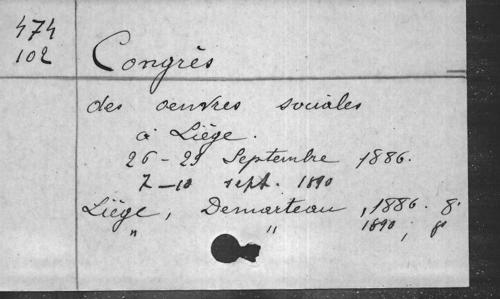 474
102
Congrès
des oeuvres sociales
à Liége.
26 - 29 Septembre 1886.
7 - 10 sept. 1890
Liége, Demarteau, 1886. 8°
" " 1890, 8°